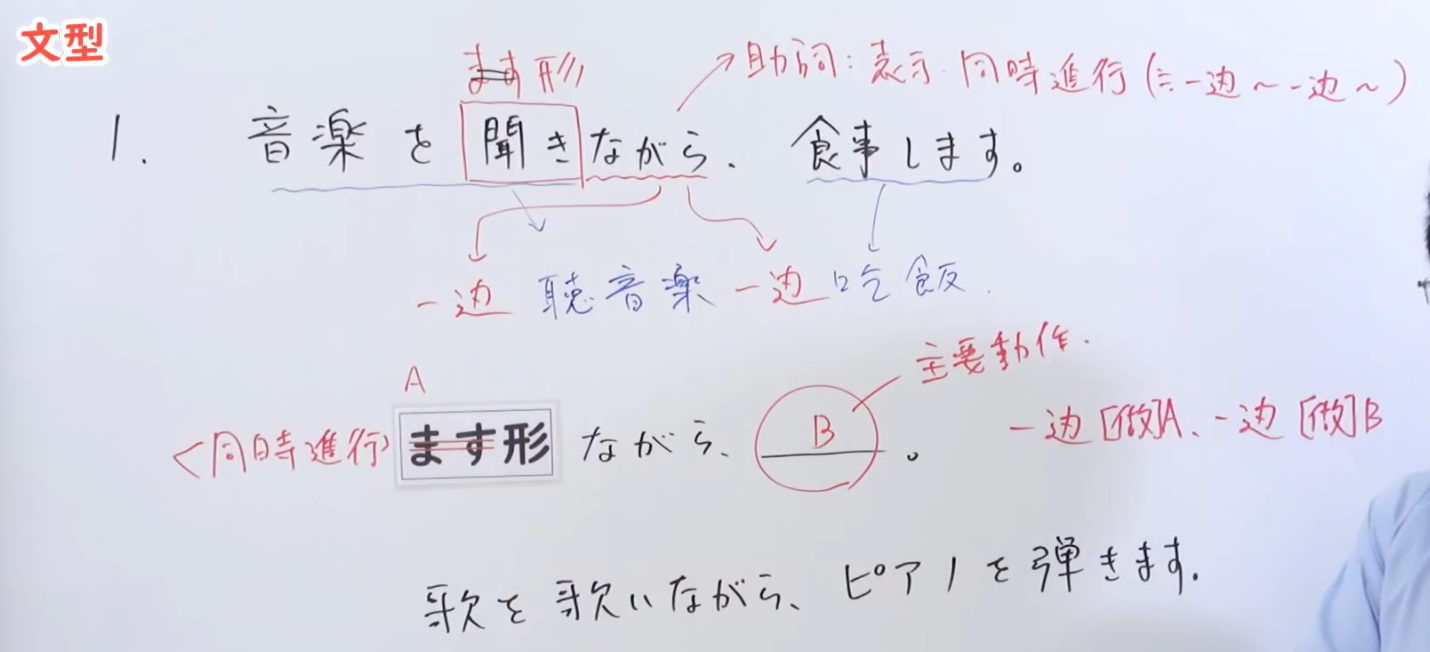 文型
ます形
助詞：表示同時進行(≒一边～一边～)
1. 音楽を聞きながら、食事します。
一边聴音楽一边吃飯.
主要動作.
A
<同時進行>ます形ながら、B。
一边[做]A、一边[做]B
歌を歌いながら、ピアノを弾きます.